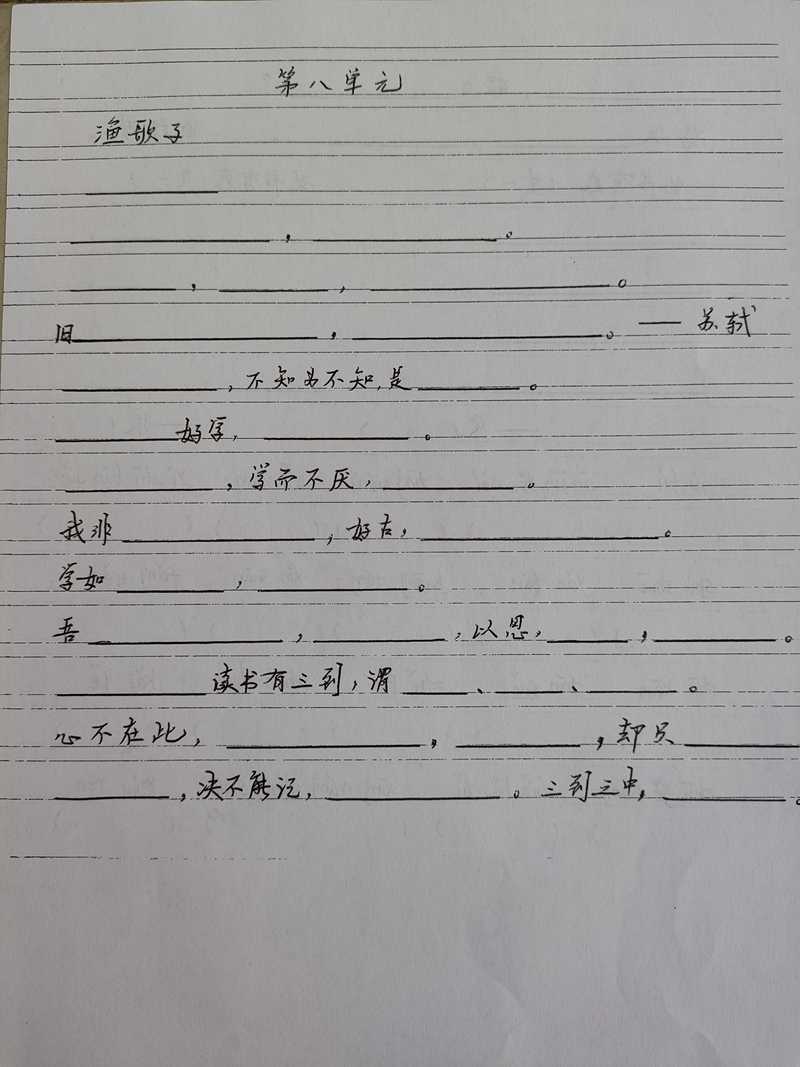 第八单元
渔歌子
________
____________，____________。
_______，_______，________________。
旧_______________，_______________。—— 苏轼
__________，不知为不知，是_______。
________好学，_________。
__________，学而不厌，________。
我非____________，好古，_______________。
学如_______，_________。
吾____________，________，以思，_____，________。
__________读书有三到，谓____、____、_____。
心不在此，____________，________，却只________
_______，决不能记，___________。三到之中，________。